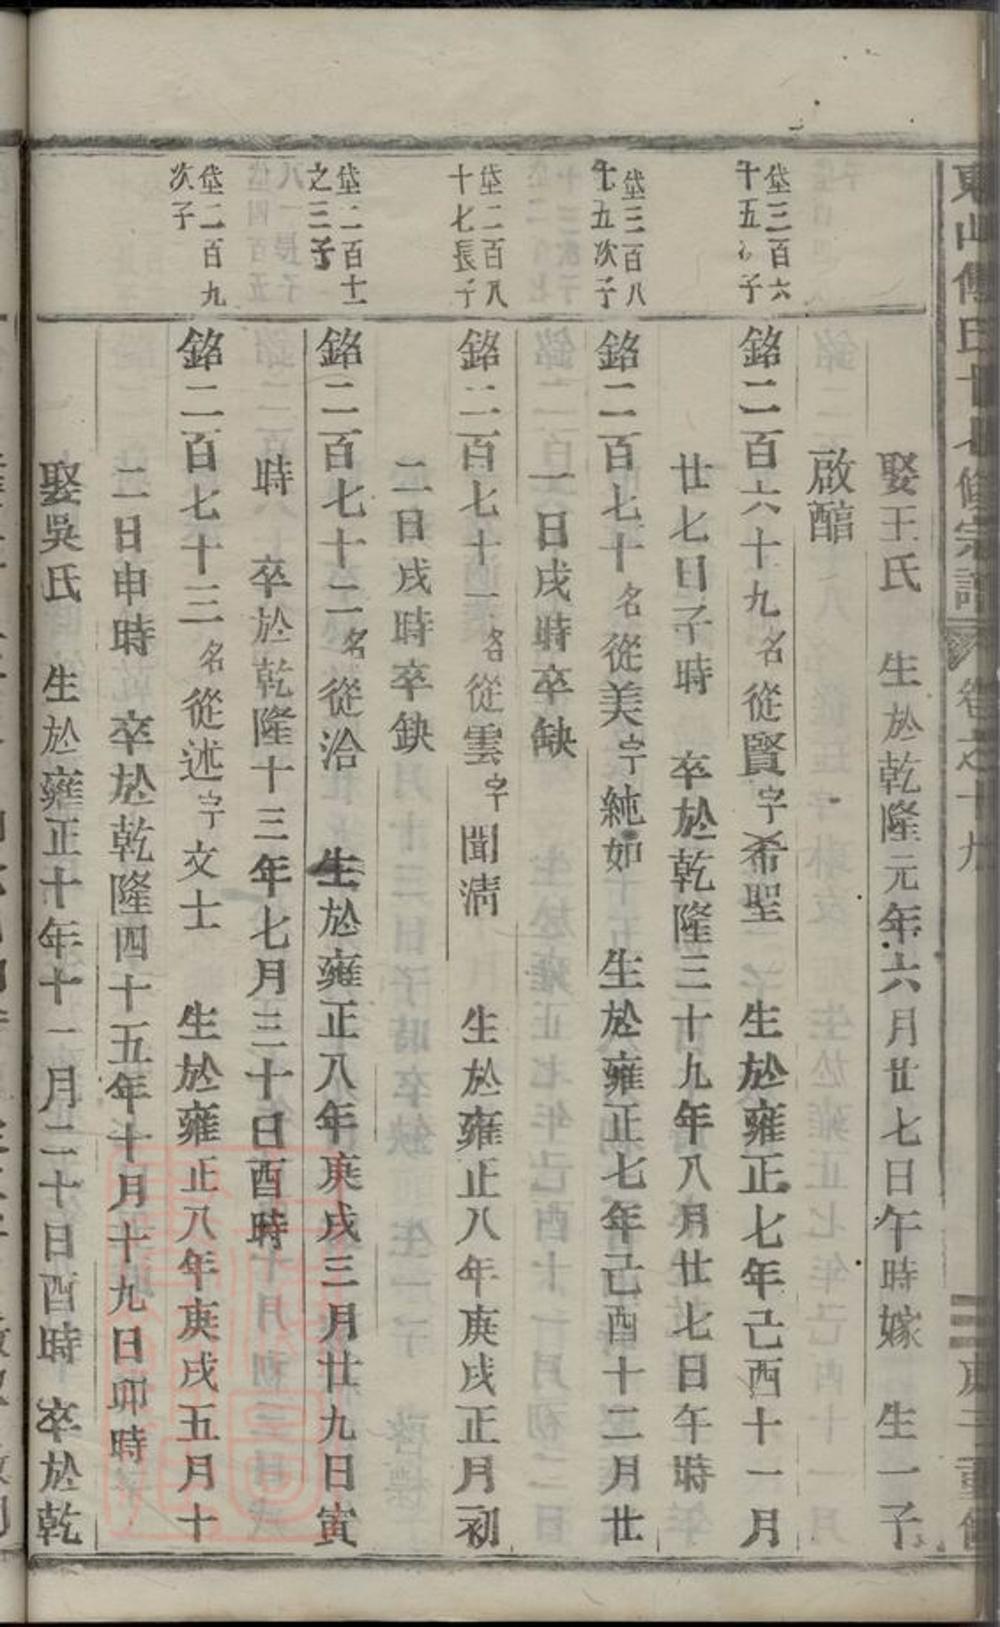 東山傅氏十七修宗譜 卷之十九
娶王氏 生於乾隆元年六月廿七日午時嫁 生一子
啟醕
岱三百六十五次子
銘二百六十九名從賢字希聖 生於雍正七年己酉十一月
廿七日子時 卒於乾隆三十九年八月廿七日午時
岱三百八十五次子
銘二百七十名從美字純如 生於雍正七年己酉十二月廿
一日戌時卒缺
岱二百八十七長子
銘二百七十一名從雲字聞清 生於雍正八年庚戌正月初
二日戌時卒缺
岱二百十一之三子
銘二百七十二名從治 生於雍正八年庚戌三月廿九日寅
時 卒於乾隆十三年七月三十日酉時
岱二百九次子
銘二百七十三名從述字文士 生於雍正八年庚戌五月十
二日申時 卒於乾隆四十五年十月十九日卯時
娶吳氏 生於雍正十年十一月二十日酉時 卒於乾